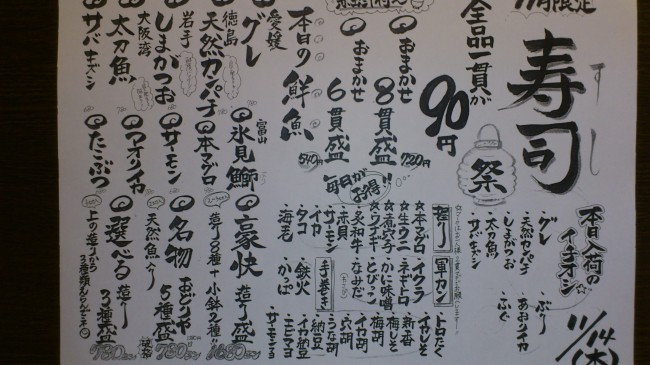 11月限定
寿司
すし
祭
全品一貫が
90円
おまかせ
8貫盛
720円
おまかせ
6貫盛
540円
毎日がお得!!
本日入荷の
イチオシ
・グレ
・天然カンパチ
・しまがつお
・太刀魚
・サバキズシ
・ぶり
・あおりイカ
・ふぐ
11/14(木)
握り
☆本マグロ
☆生ウニ
☆煮穴子
☆ウナギ
・炙和牛
・赤貝
・サーモン
・イカ
・タコ
・海老
軍カン
・イクラ
・ネギトロ
・かに味噌
・とびっこ
手巻き
・なみだ
・鉄火
・かっぱ
・トロたく
・イカしそ
・新香
・梅しそ
・梅胡
・イカ胡
・穴胡
・うな胡
・納豆
・イカ納豆
・エビマヨ
本日の鮮魚
愛媛
グレ
徳島
天然カンパチ
岩手
しまがつお
大阪湾
太刀魚
サバキズシ
富山
氷見鰤
本マグロ
サーモン
アオリイカ
たこぶつ
豪快
造り盛
造り8種+小鉢2種!!
1680
名物
おどりや
5種盛
天然魚入り
選べる
造り
3種盛
上の造りから
3種類えらんデネ